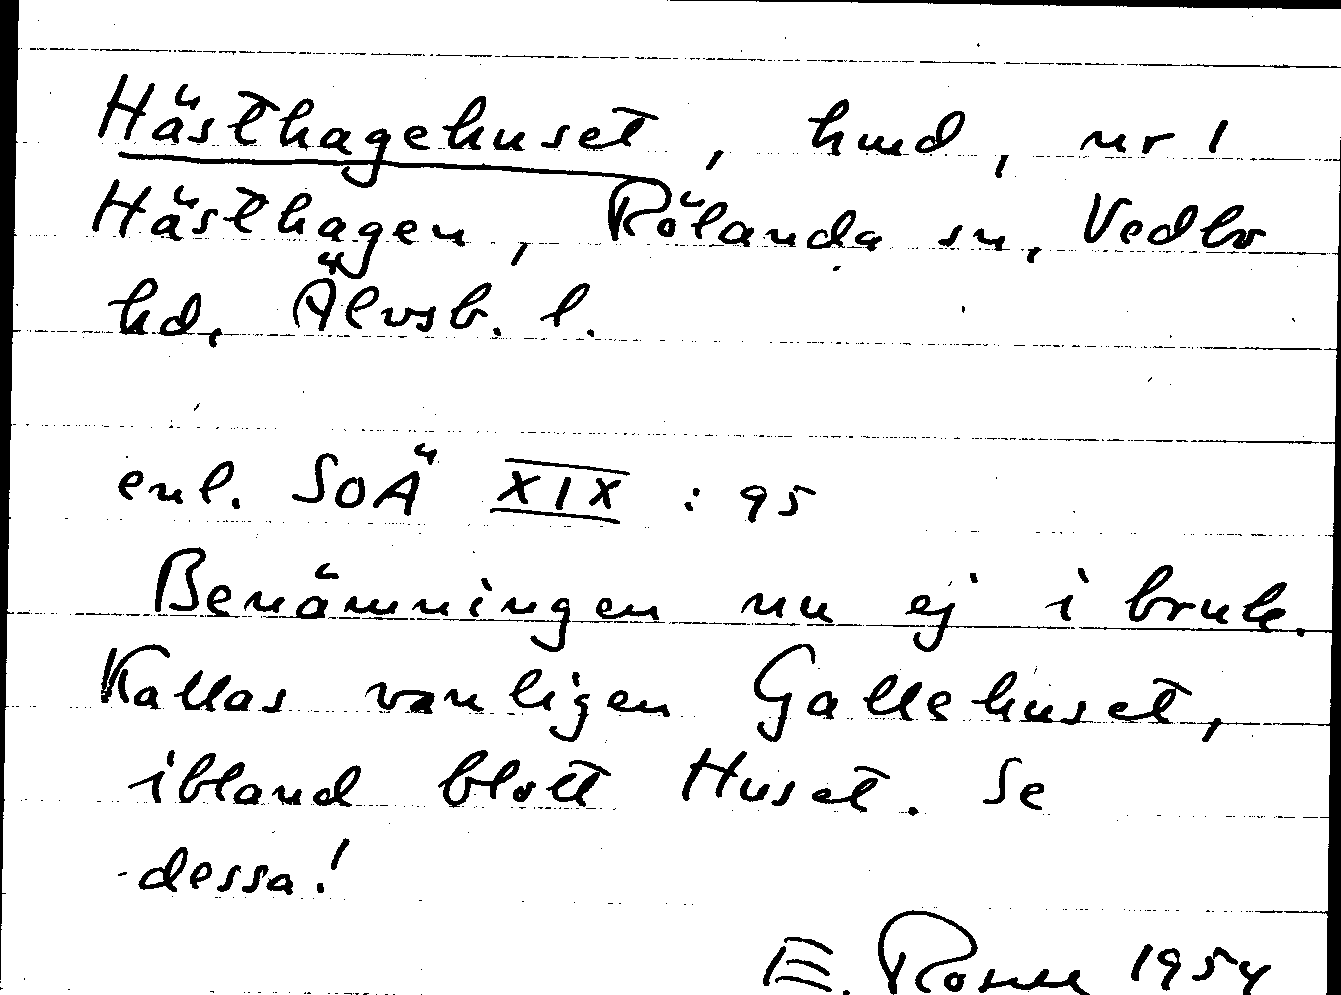 Hästhagehuset, hmd, nr 1
Hästhagen, Rölanda sn, Vedbo
hd, Älvsb. l.
enl. SOÄ XIX : 95
Benämningen nu ej i bruk.
Kallas vanligen Gallehuset,
ibland blott Huset. Se
dessa!
E. 1954